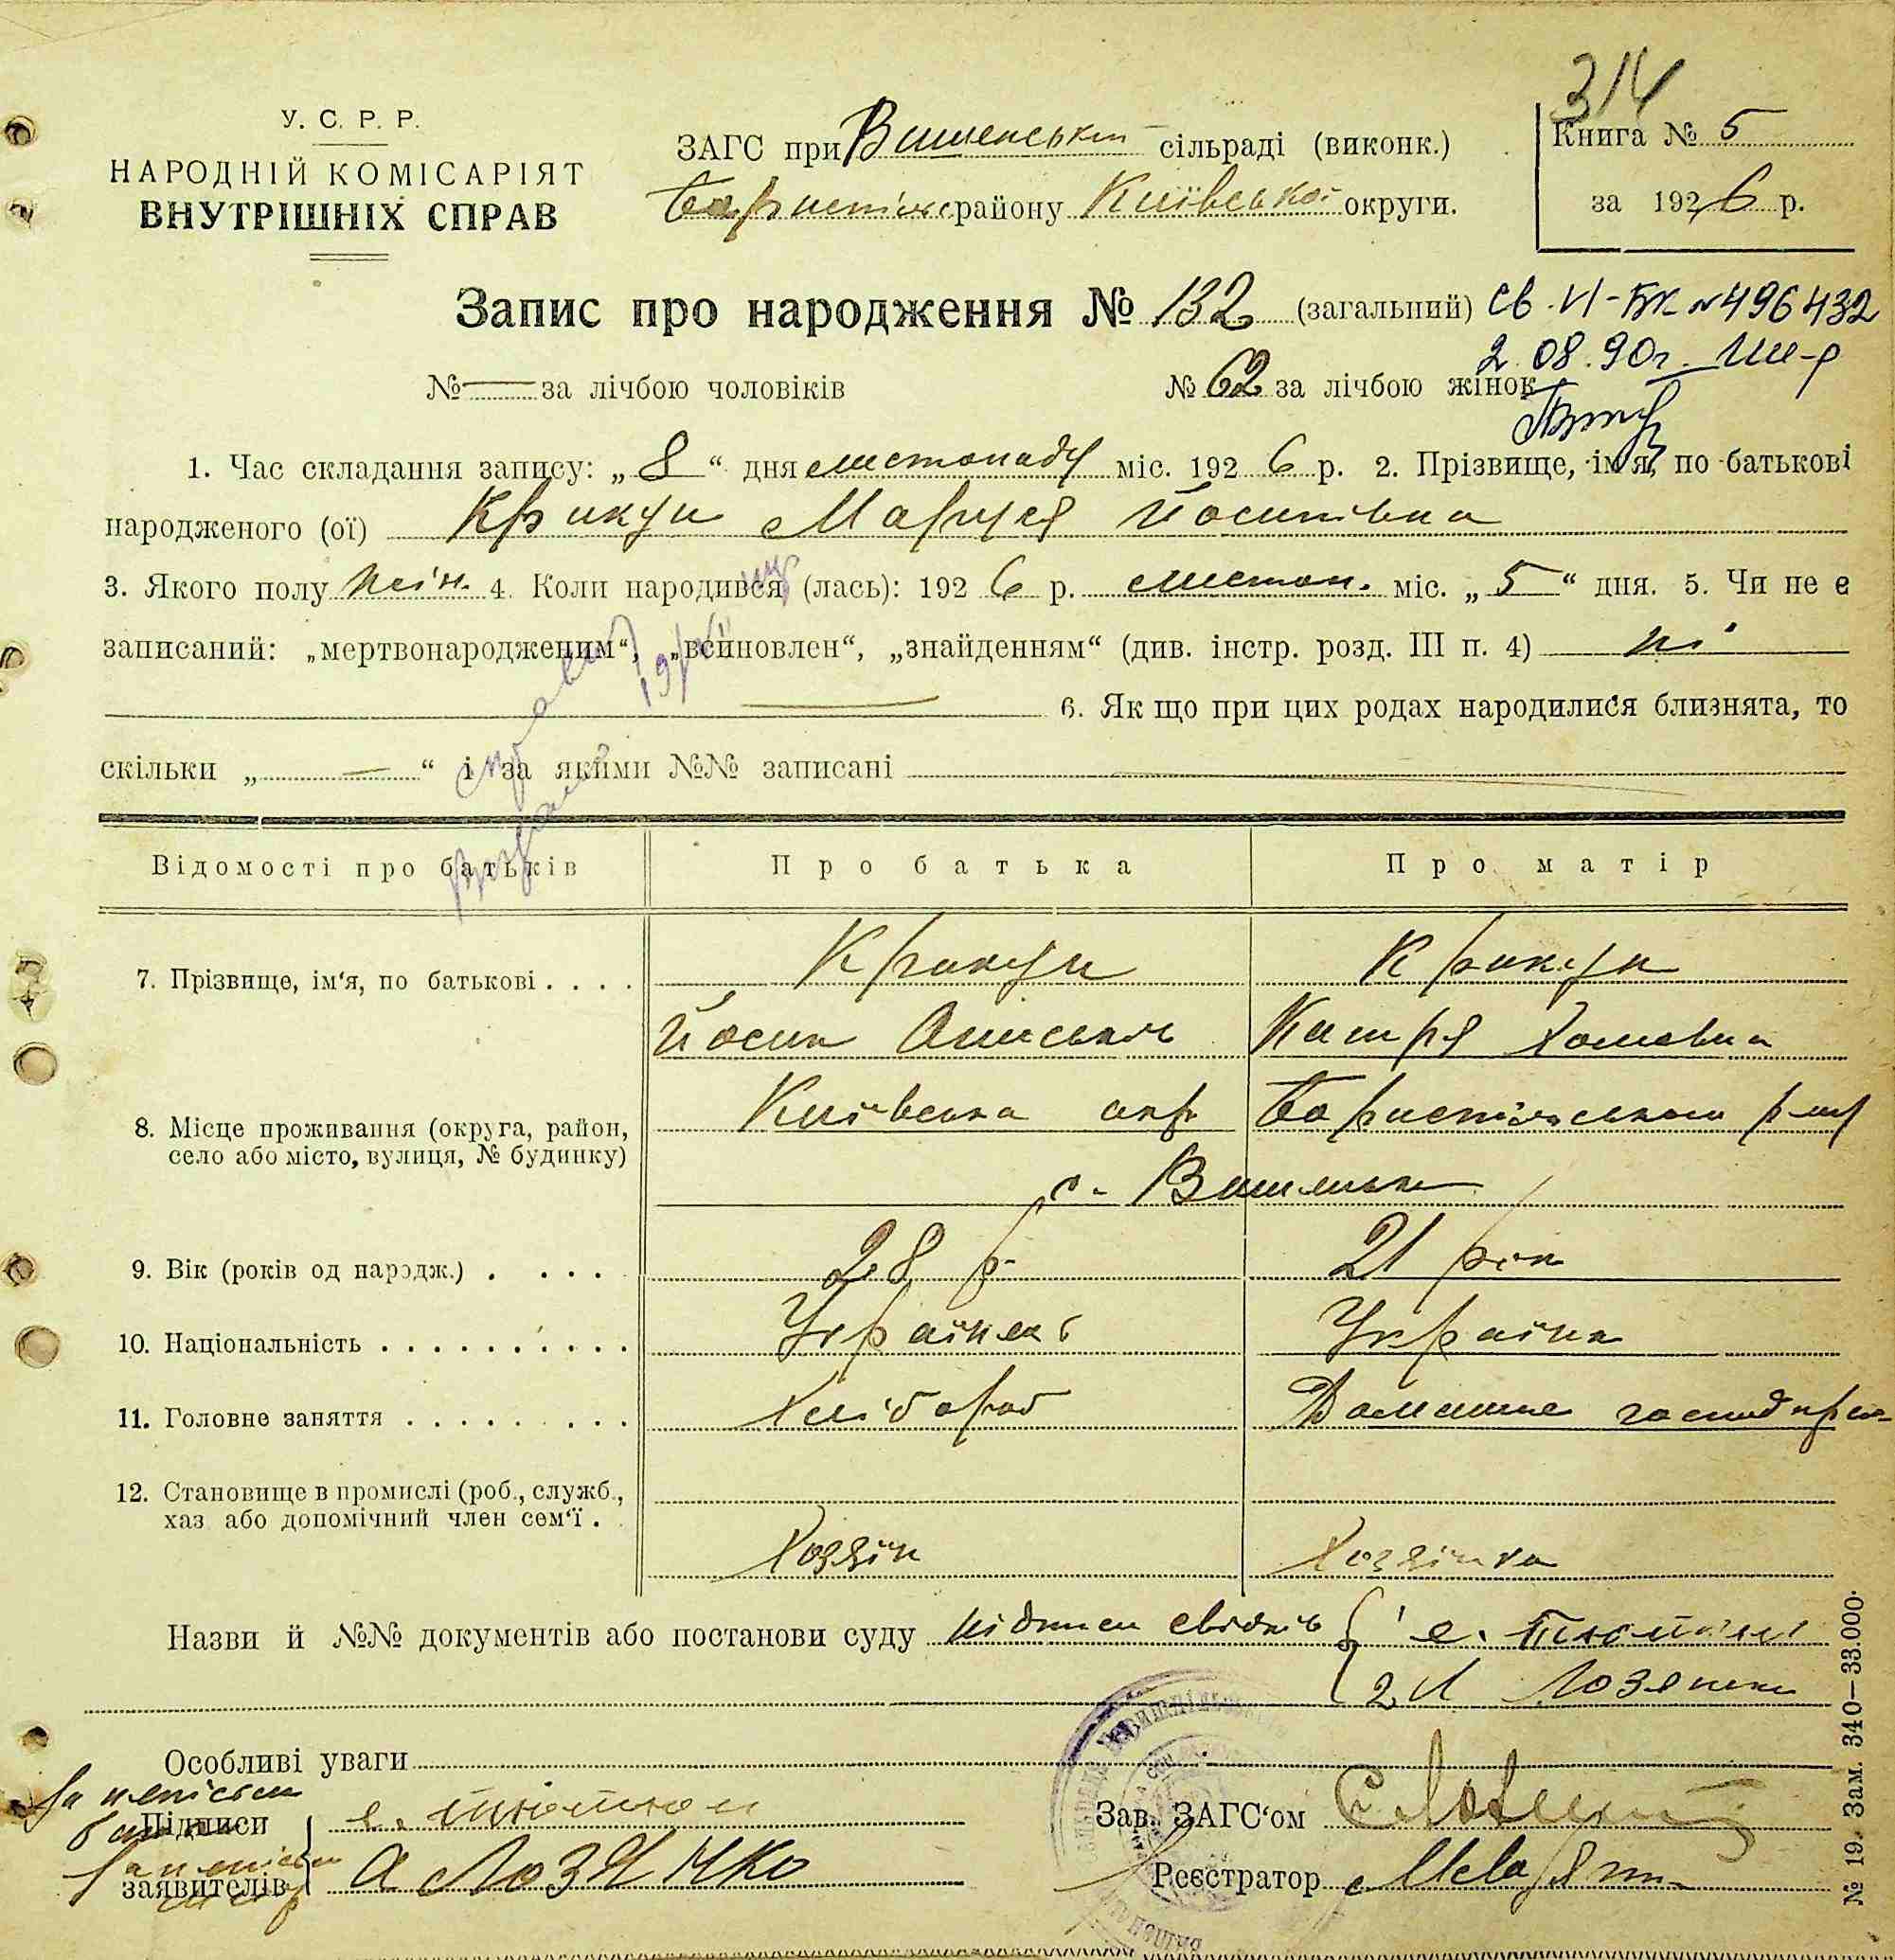 314
У. С. Р. Р.
НАРОДНІЙ КОМІСАРІЯТ
ВНУТРІШНІХ СПРАВ
ЗАГС при Вишенській сільраді (виконк.)
району Київської округи.
Книга № 5
за 1926 р.
Запис про народження № 132 (загальний) св. VI-БК №496432
2.08.90г.
№ — за лічбою чоловіків № 62 за лічбою жінок
1. Час складання запису: „8“ дня листопаду міс. 1926 р. 2. Прізвище, ім'я, по батькові
народженого (ої) Крикун Маруся Йосипівна
3. Якого полу жін. 4. Коли народився (лась): 1926 р. листоп. міс. „5“ дня. 5. Чи не є
записаний: „мертвонародженим“, „всиновлен“, „знайденням“ (див. інстр. розд. III п. 4) ні
— 6. Як що при цих родах народилися близнята, то
скільки „—“ і за якими №№ записані
Відомості про батьків Про батька Про матір
7. Прізвище, ім'я, по батькові . . . . Крикун Крикун
Йосип Катря Хомівна
8. Місце проживання (округа, район, Київська окр Бориспільського р-ну
село або місто, вулиця, № будинку)
с. Вишеньки
9. Вік (років од народж.) . . . . 28 р. 21 рік
10. Національність . . . . . . . . . . Українець Україна
11. Головне заняття . . . . . . . . . Хлібороб Домашнє
12. Становище в промислі (роб., служб.,
хаз або допомічний член сем'ї .
Хозяін Хозяінка
Назви й №№ документів або постанови суду підписи свідків { 1 є.
2 Л
Особливі уваги
За неписьм
Підписи є.
заявителів А Лозячко
Зав. ЗАГС'ом
Реєстратор
№ 19. Зам. 340—33.000.